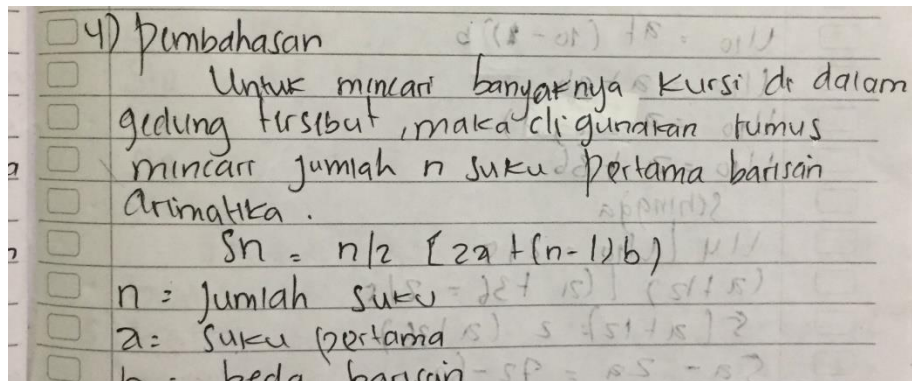 4) Pembahasan
Untuk mencari banyaknya kursi di dalam
gedung tersebut, maka digunakan rumus
mencari jumlah n suku pertama barisan
aritmatika.
Sn = n/2 [2a + (n-1)b)
n = Jumlah suku
a = suku pertama
b = beda barisan